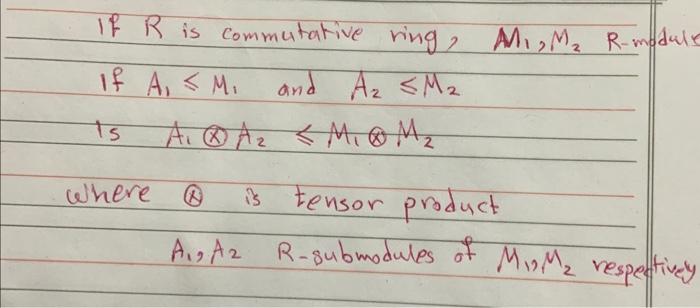 If R is commutative ring, M₁, M₂ R-module
If A₁ ≤ M₁ and A₂ ≤ M₂
Is A₁ ⊗ A₂ ≤ M₁ ⊗ M₂
where ⊗ is tensor product
A₁, A₂ R-submodules of M₁, M₂ respectively